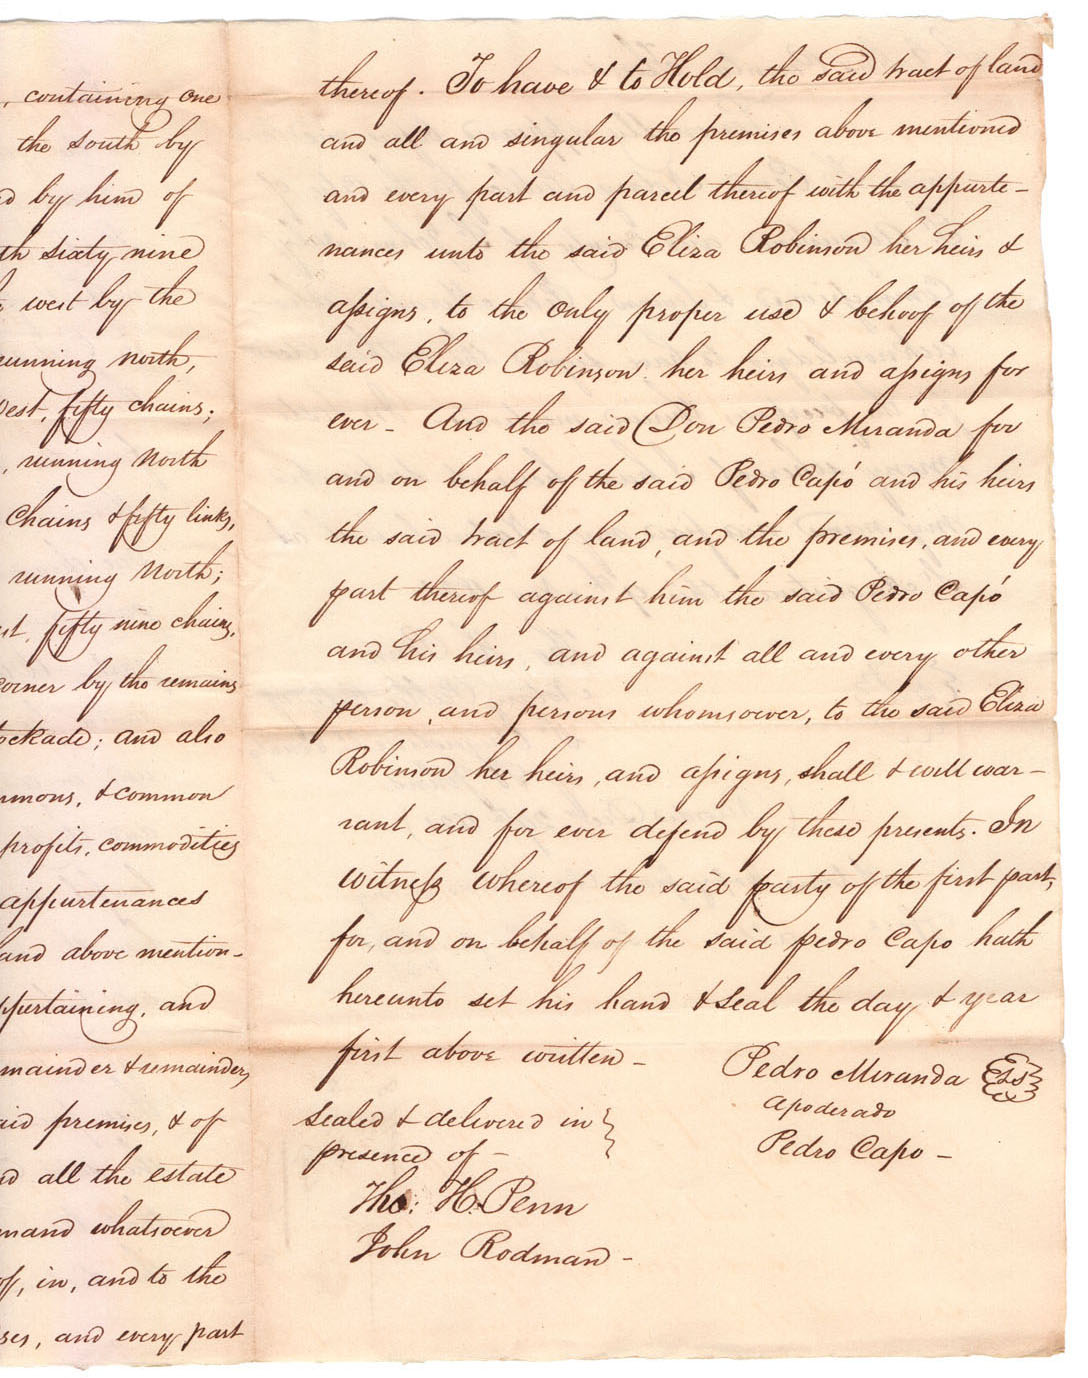 , containing one
the south by
by him of
sixty nine
west by the
running north,
fifty chains;
, running North
Chains & fifty links,
running North;
fifty nine chains,
corner by the remains
; and also
, & common
profits, commodities
appurtenances
and above mention-
, and
& remainder,
premises, & of
all the estate
whatsoever
, in, and to the
, and every part
thereof. To have & to Hold, the said tract of land
and all and singular the premises above mentioned
and every part and parcel thereof with the appurte-
nances unto the said Eliza Robinson her heirs &
aſsigns, to the only proper use & behoof of the
said Eliza Robinson her heirs and aſsigns for
ever - And the said Don Pedro Miranda for
and on behalf of the said Pedro Capó and his heirs
the said tract of land, and the premises, and every
part thereof against him the said Pedro Capó
and his heirs, and against all and every other
person, and persons whomsoever, to the said Eliza
Robinson her heirs, and aſsigns, shall & will war-
rant, and for ever defend by these presents. In
witneſs whereof the said party of the first part,
for, and on behalf of the said pedro Capo hath
hereunto set his hand & Seal the day & year
first above written -
Pedro Miranda
apoderado
Pedro Capo -
Sealed & delivered in
presence of -
Tho: H. Penn
John Rodman -